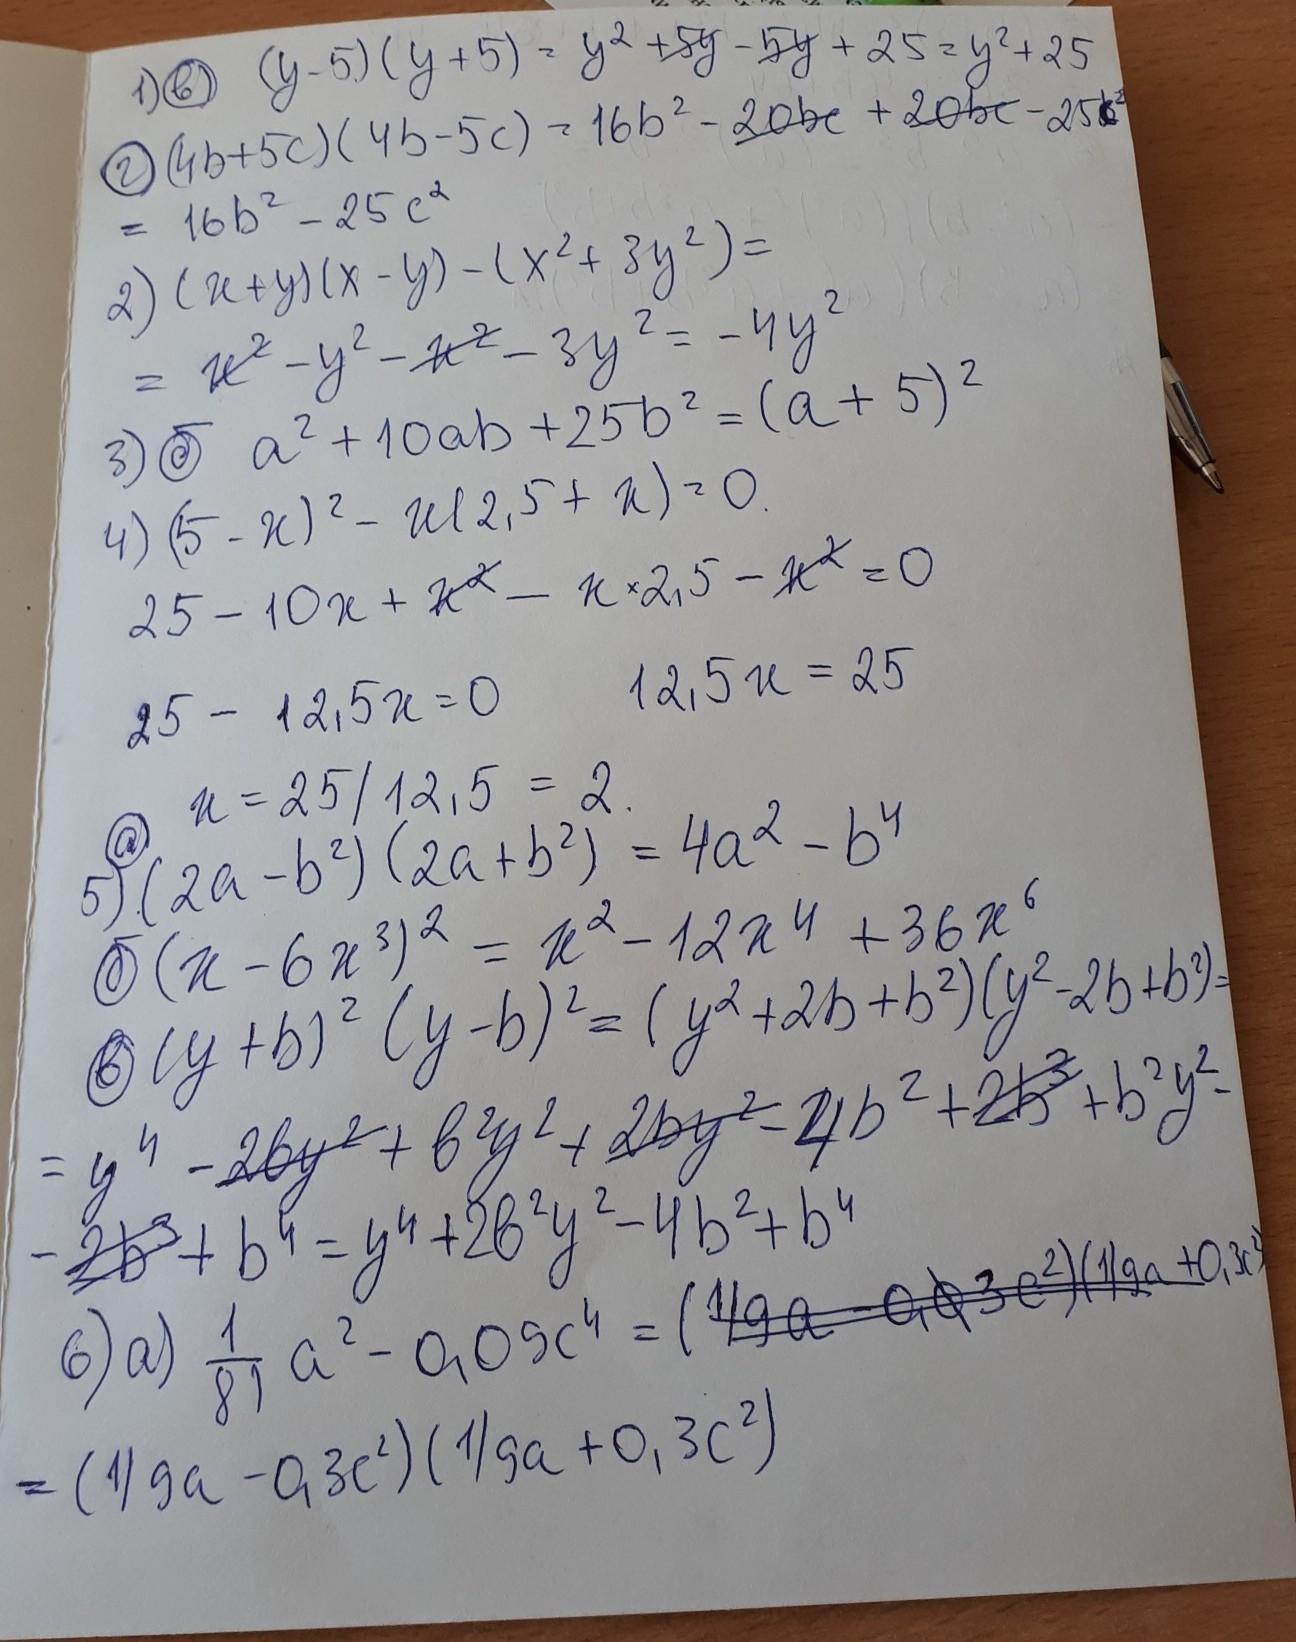 1) в) (y-5)(y+5) = y² +5y -5y + 25 = y² + 25
г) (4b+5c)(4b-5c) = 16b² - 20bc + 20bc - 25c²
= 16b² - 25c²
2) (x+y)(x-y) - (x² + 3y²) =
= x² - y² - x² - 3y² = -4y²
3) б a² + 10ab + 25b² = (a + 5)²
4) (5 - x)² - x(2,5 + x) = 0.
25 - 10x + x² - x × 2,5 - x² = 0
25 - 12,5x = 0 12,5x = 25
x = 25/12,5 = 2.
5) а (2a - b²)(2a + b²) = 4a² - b⁴
б (x - 6x³)² = x² - 12x⁴ + 36x⁶
в (y + b)² (y - b)² = (y² + 2b + b²)(y² - 2b + b²) =
= y⁴ - 2by² + b²y² + 2by² - 4b² + 2b³ + b²y² -
- 2b³ + b⁴ = y⁴ + 2b²y² - 4b² + b⁴
6) а) 1/81 a² - 0,09c⁴ = (1/9a - 0,03c²)(1/9a + 0,3c²)
= (1/9a - 0,3c²)(1/9a + 0,3c²)